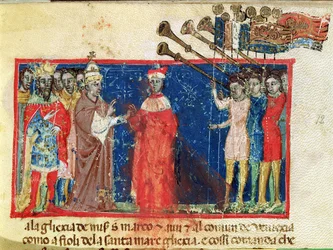 ala ghexia de mis s marco ⁊ uui ⁊ al comun de uenexia
como a fioli dela santa mare ghexia. e cossi comanda che